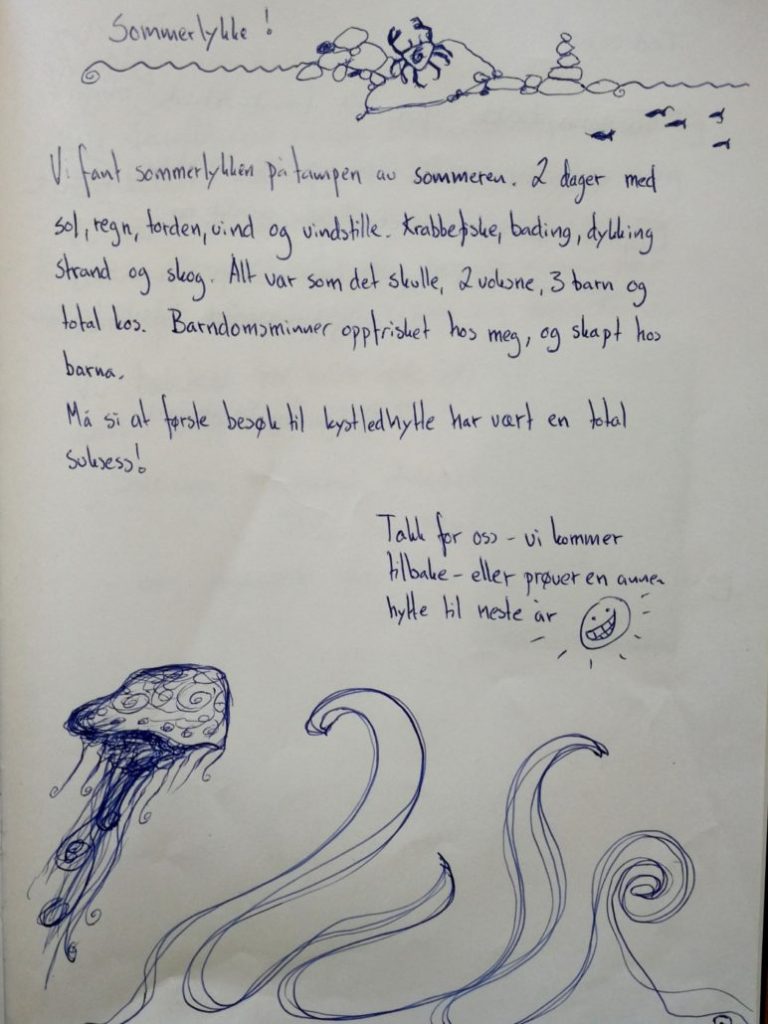 Sommerlykke!
Vi fant sommerlykken på tampen av sommeren. 2 dager med
sol, regn, torden, vind og vindstille. Krabbefiske, bading, dykking
strand og skog. Alt var som det skulle, 2 voksne, 3 barn og
total kos. Barndomsminner oppfrisket hos meg, og skapt hos
barna.
Må si at første besøk til kystledhytte har vært en total
suksess!
Takk for oss - vi kommer
tilbake - eller prøver en annen
hytte til neste år